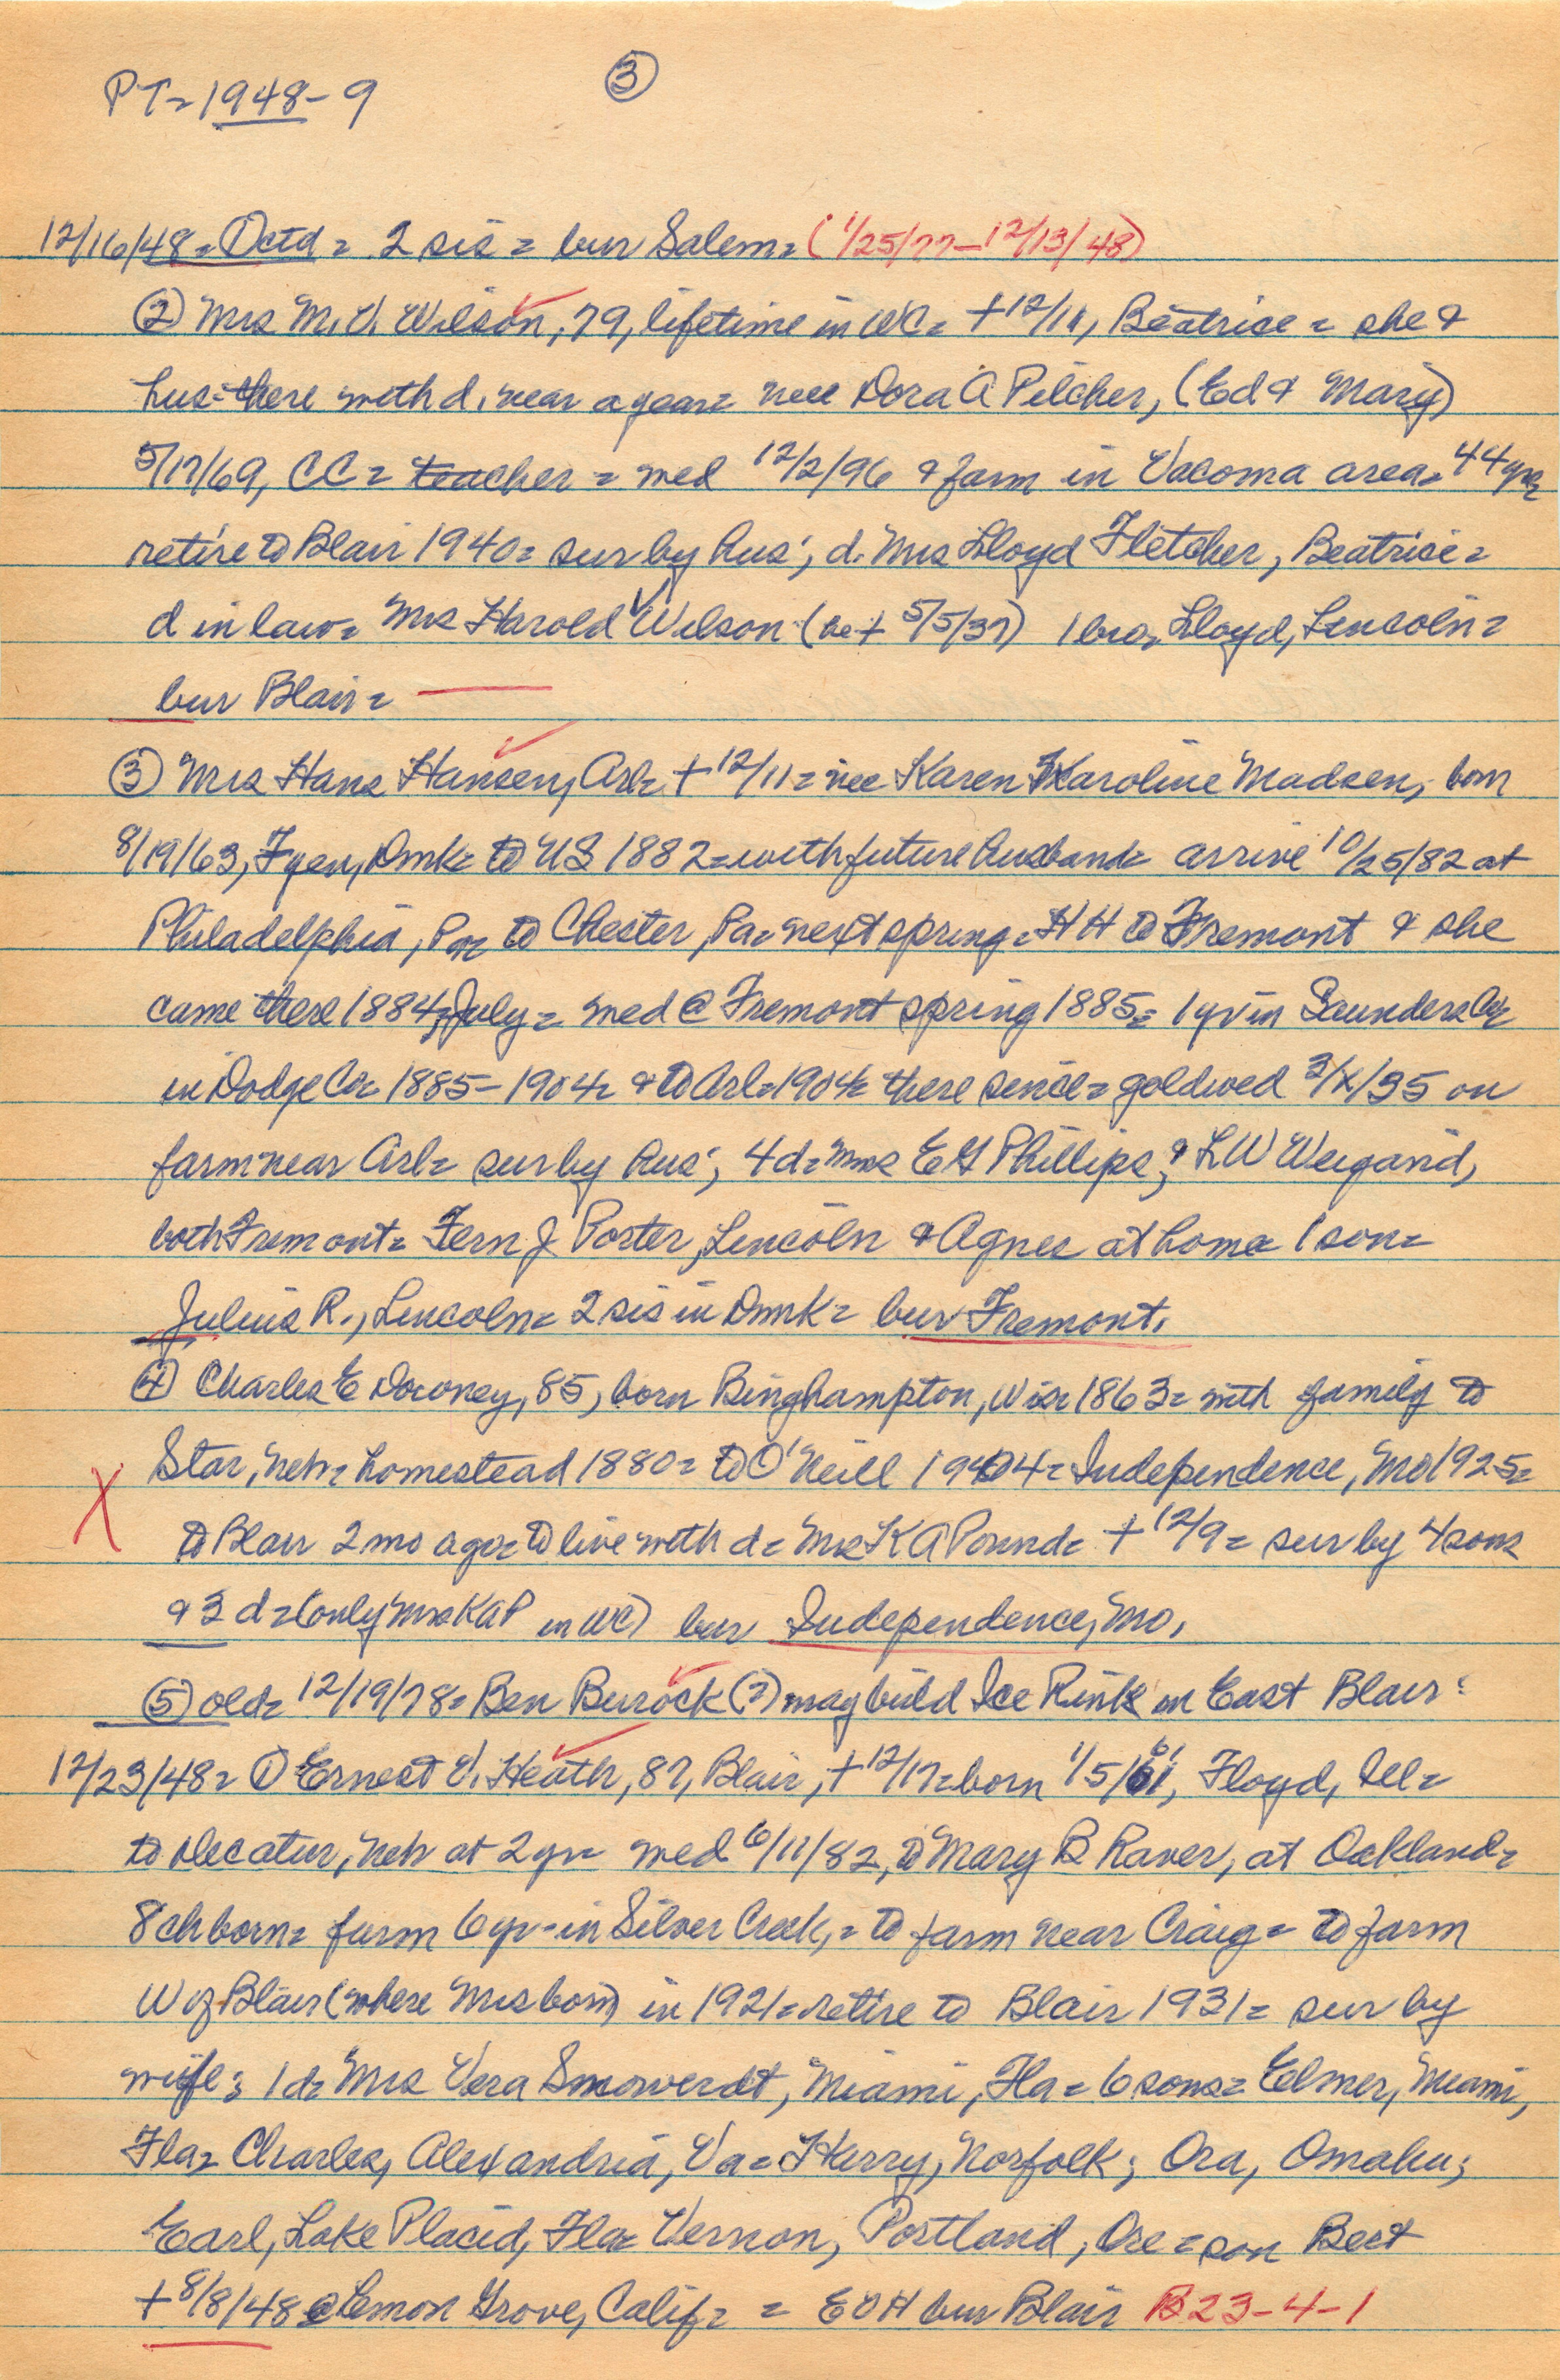 PT = 1948-9 ③
12/16/48 = Octd = 2 sis = bur Salem = (1/25/77-12/13/48)
② Mrs M. V. Wilson, 79, lifetime in WC = +12/11, Beatrice = she &
hus = there with d. near a year = nee Dora A Pilcher, (Ed & Mary)
5/17/69, CC = teacher = med 12/2/96 & farm in Vacoma area = 44 yrs
retire to Blair 1940 = sur by hus; d. Mrs Lloyd Fletcher, Beatrice =
d in law = Mrs Harold Wilson (he + 5/5/37) 1 bro, Lloyd, Lincoln =
bur Blair =
③ Mrs Hans Hansen, Arl = +12/11 = nee Karen Karoline Madsen, born
8/19/63, Fyen, Dmk = to US 1882 = with future husband = arrive 10/25/82 at
Philadelphia, Pa = to Chester, Pa = next spring = HH to Fremont & she
came there 1884, July = med @ Fremont spring 1885 = 1 yr in Saunders Co =
in Dodge Co = 1885-1904 = & to Arl = 1904 = there since = gold wed 3/X/35 on
farm near Arl = sur by hus; 4 d = Mrs E G Phillips, & L W Weigand,
both Fremont = Fern J Porter, Lincoln & Agnes at home 1 son =
Julius R., Lincoln = 2 sis in Dmk = bur Fremont.
④ Charles E Downey, 85, born Binghampton, Wis = 1863 = with family to
Star, Neb = homestead 1880 = to O'Neill 1904 = Independence, Mo 1925 =
X to Blair 2 mo ago = to live with d = Mrs K A Pound = +12/9 = sur by 4 sons
& 3 d = (only Mrs KAP in WC) bur Independence, Mo.
⑤ old = 12/19/78 = Ben Burock (?) may build Ice Rink in East Blair =
12/23/48 = ① Ernest V. Heath, 87, Blair, +12/17 = born 1/5/61, Floyd, Ill =
to Decatur, Neb at 2 yr = med 6/11/82, to Mary B Raver, at Oakland =
8 ch born = farm 6 yr = in Silver Creek, = to farm near Craig = to farm
W of Blair (where Mrs born) in 1921 = retire to Blair 1931 = sur by
wife; 1 d = Mrs Vera Smowerdt, Miami, Fla = 6 sons = Elmer, Miami,
Fla = Charles, Alexandria, Va = Harry, Norfolk; Ora, Omaha;
Earl, Lake Placid, Fla = Vernon, Portland, Ore = son Bert
+8/8/48 @ Lemon Grove, Calif = = EVH bur Blair B23-4-1